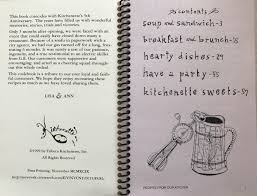 This book coincides with Kitchenette's 5th
Anniversary. The years have been filled with so wonderful
memories, stories, trials and victories.
Only 3 months after opening, we were faced with an
event that could easily have closed down many a
restaurant. Because of a mistake in paperwork with a
city agency, we had our gas turned off for a long, frus-
trating 6 months. It was surely a test of our creative
and emotional stamina, and a testimonial to an electric
skillet from G.E. Our customers were supportive and
encouraging and that is what carried us through this
whole ordeal.
This cookbook is a tribute to our ever loyal and faith-
ful customers. We hope they enjoy recreating these
recipes as much as we have loved sharing them.
LISA & ANN
Kitchenette
©1999 by Kitchenette, Inc.
All Rights Reserved.
First Printing: November MCMXCIX
contents
soup and sandwich-3
breakfast and brunch-15
hearty dishes-29
have a party-35
kitchenette sweets-57
RECIPES FROM OUR KITCHEN